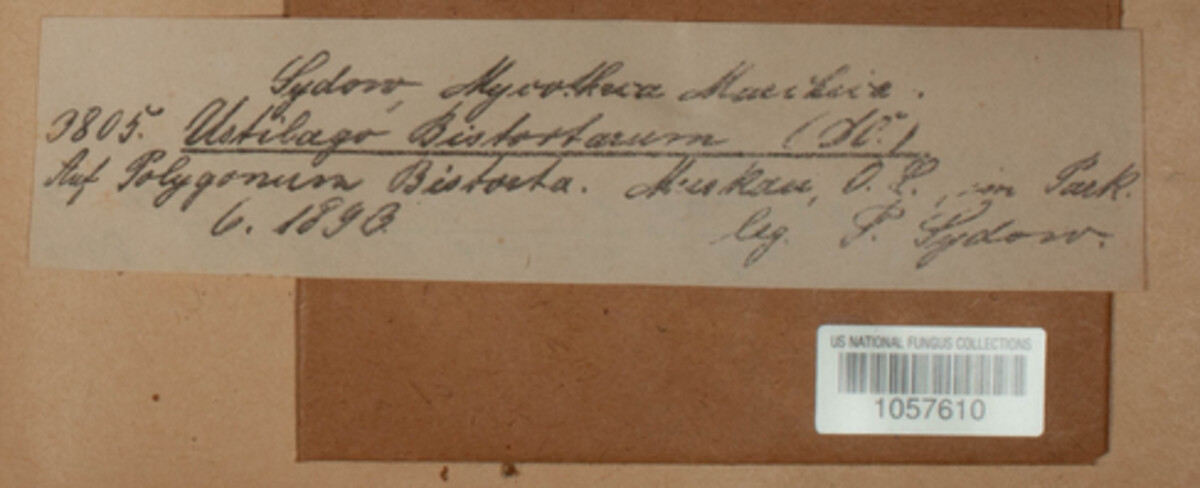 Sydow, Mycotheca Marchica.
3805. Ustilago Bistortarum (DC.)
Auf Polygonum Bistorta. Muskau, O. L., im Park.
6. 1893. leg. P. Sydow.
US NATIONAL FUNGUS COLLECTIONS
1057610